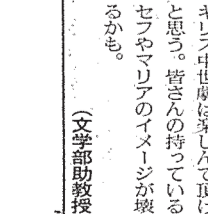 キリス中世劇は楽しんで頂け
と思う。皆さんの持っている
セフやマリアのイメージが壊
るかも。
(文学部助教授